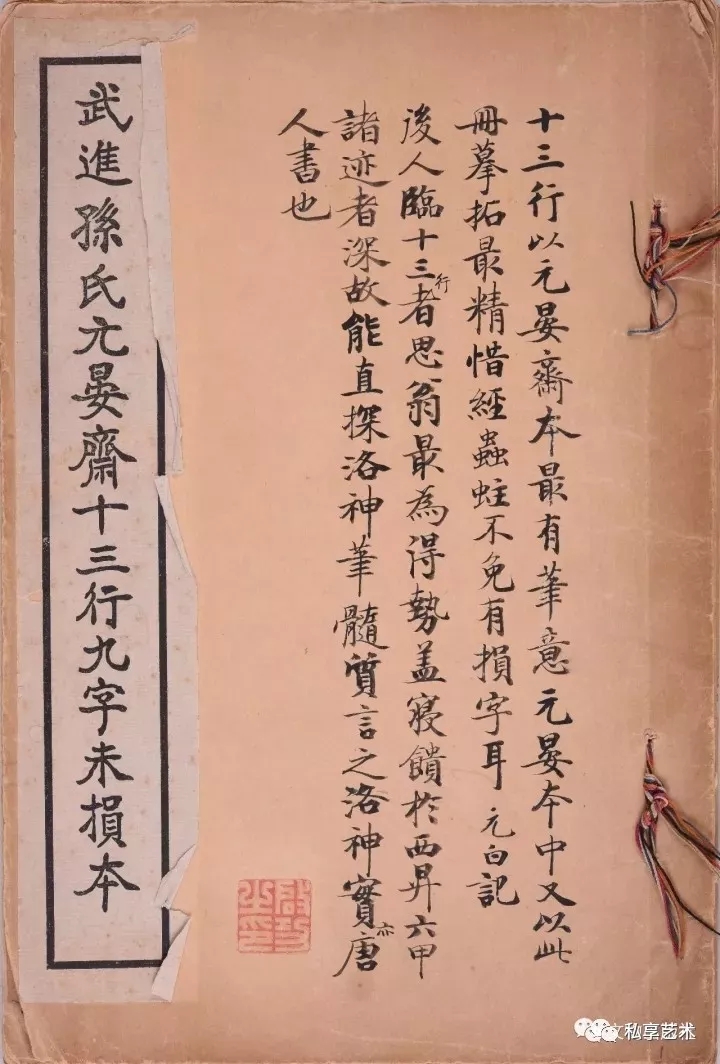 十三行以元晏齋本最有筆意元晏本中又以此
冊摹拓最精惜經蟲蛀不免有損字耳 元白記
後人臨十三行者思翁最為得勢盖寢饋於西昇六甲
諸迹者深故能直探洛神筆髓質言之洛神實亦唐
人書也
武進孫氏元晏齋十三行九字未損本
啟功之印
私享艺术